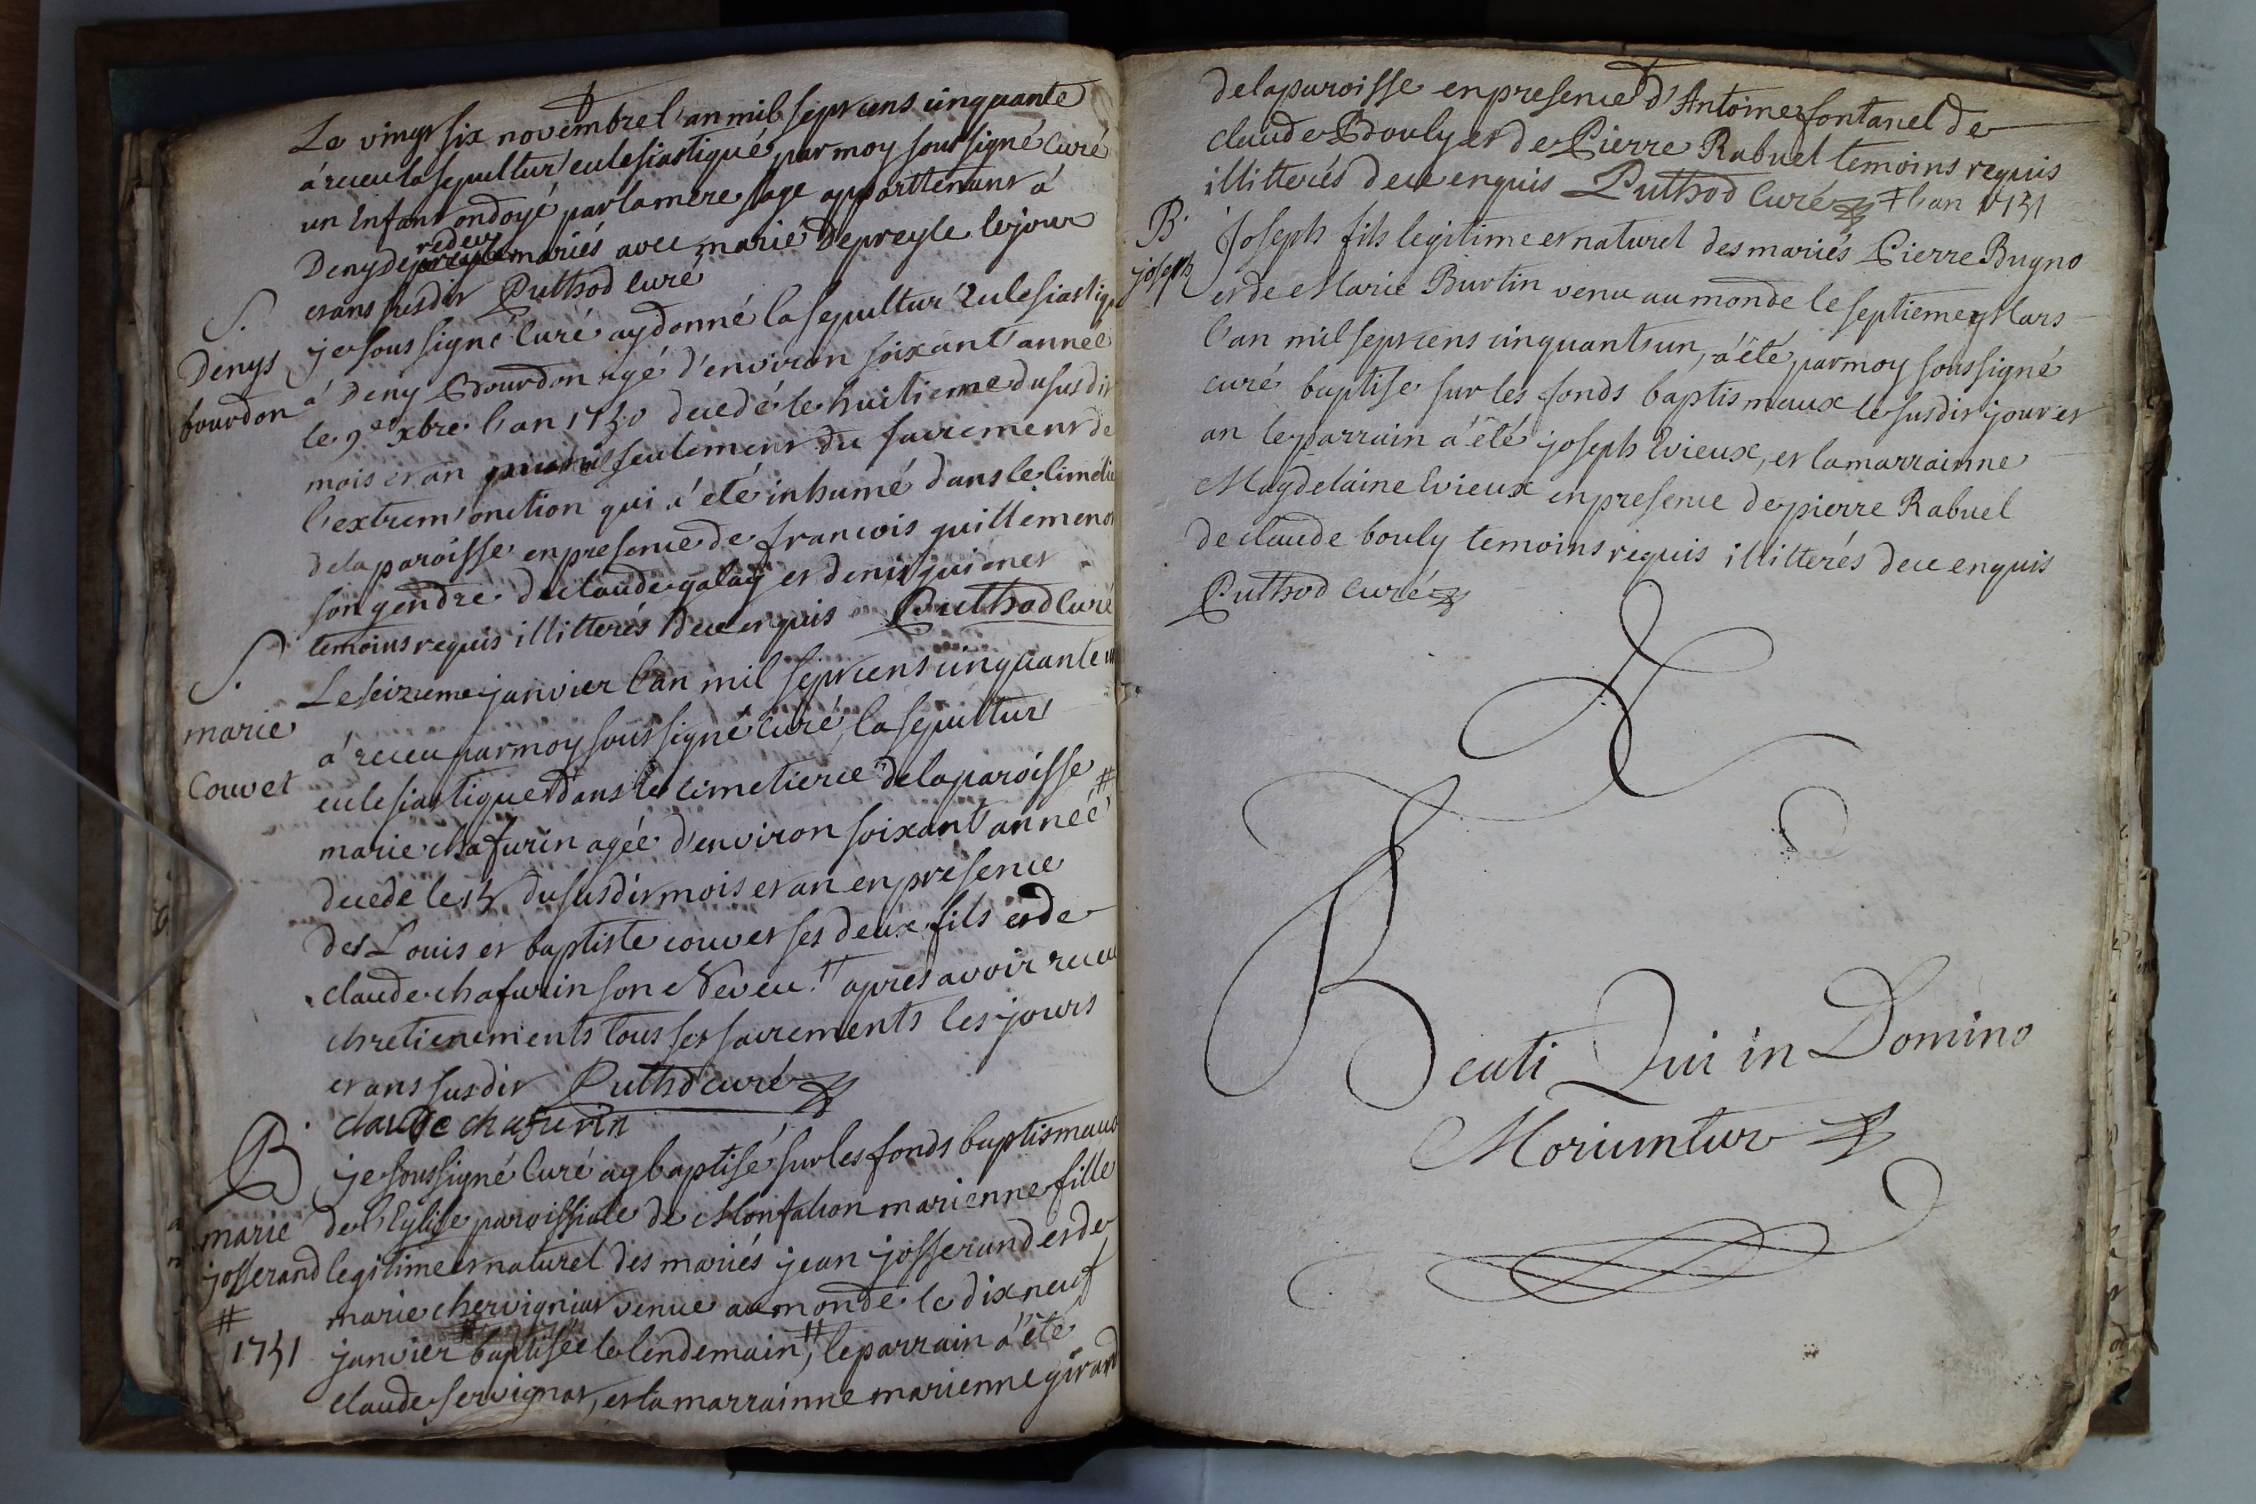 Le vingt six novembre l'an mil sept cens cinquante
á receu la sepultur' eclesiastique par moy soussigné Curé
un Enfant ondoyé par la mere sage apparttenant á
redeur
Deny mariés avec marie Depreyle le jour
et ans susdit Puthod Curé
S. Denys bourdon
je soussigné Curé ay donné la sepultur' Eclesiastiqu
á Deny Bourdon agé d'environ soixant' année
le 9e xbre l'an 1750 decedé le huitieme du susdit
mois et an seulement du sacrement de
l'extrem' onction qui á eté inhumé dans le cimetie
de la paroisse en presence de francois guillemenot
son gendre de claude galay et denis guionet
temoins requis illitterés de ce enquis Puthod Curé
S. marie Couvet
Le seizieme janvier l'an mil sept cens cinquante un
á receu par moy soussigné Curé la sepultur'
eclesiastique dans le cimetierre de la paroisse #
marie chafurin agée d'environ soixant' année
decede le 15 du susdit mois et an en presence
des Louis et baptiste couvet ses deux fils et de
claude chafurin son Neveu. # apres avoir receu
chretienements tous ses sacrements les jours
et ans susdit Puthod curé
claude chafurin
B marie josserand # 1751
je soussigné Curé ay baptisé sur les fonds baptismaux
de l'Eglise paroissiale de Monfalcon marienne fille
legitime et naturel des mariés jean josserand et de
marie chervignat venue au monde le dix neuf
janvier baptisée le lendemain #, le parrain á eté
claude servignat, et la marrainne marienne girard
de la paroisse en presence d'Antoine fontanel de
claude Bouly et de Pierre Rabuel temoins requis
illitterés de ce enquis Puthod Curé # l'an 1751
B. joseph
Joseph fils legitime et naturel des mariés Pierre Bugno
et de Marie Burtin venu au monde le septieme Mars
l'an mil sept cens cinquant' un, á été par moy soussigné
curé baptise sur les fonds baptismaux le susdit jour et
an le parrain á été joseph Evieux, et la marrainne
Magdelaine Evieux en presence de pierre Rabuel
de claude bouly temoins requis illitterés de ce enquis
Puthod Curé
Beati Qui in Domino
Moriuntur